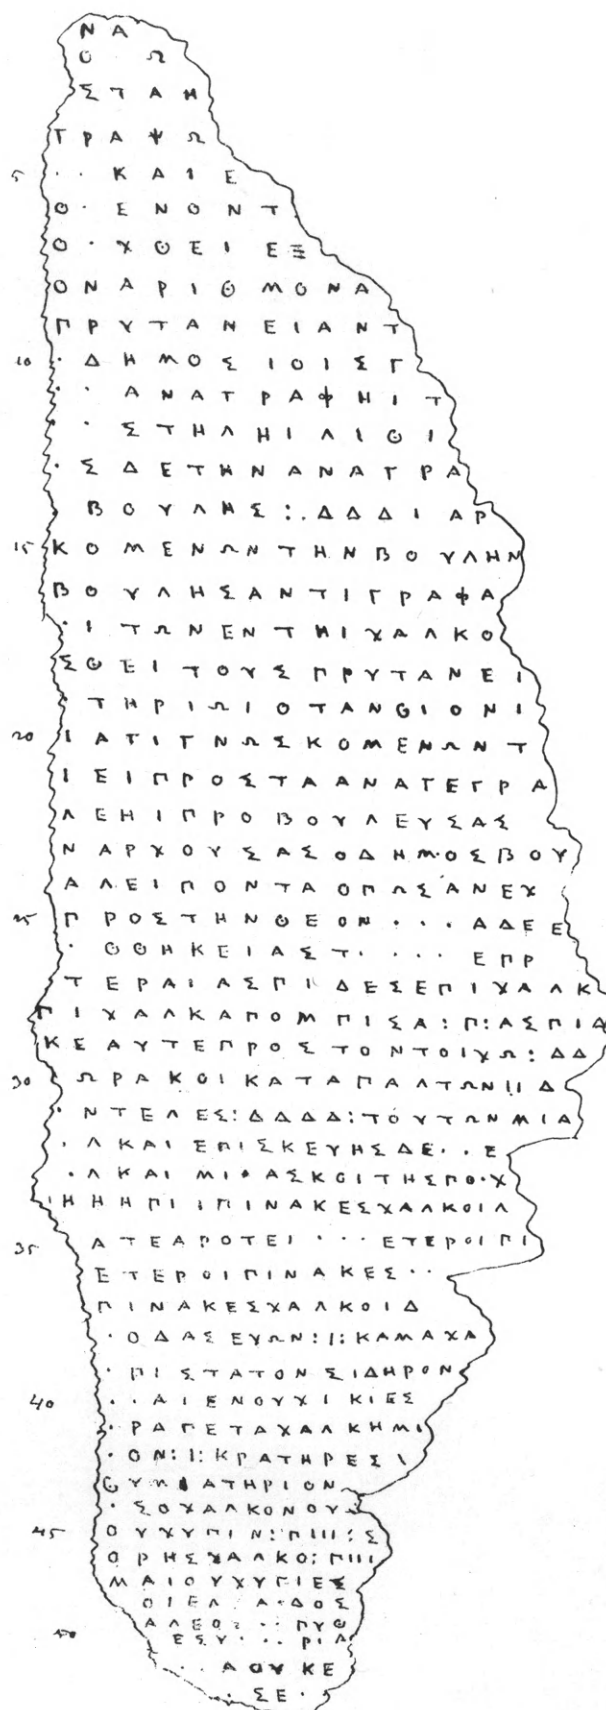 ΝΑ
Ο Ω
ΣΤΑΗ
ΓΡΑΨΩ
5 · · ΚΑΙΕ
Ο · ΕΝΟΝΤ
Ο · ΧΘΕΙΕΞ
ΟΝΑΡΙΘΜΟΝΑ
ΠΡΥΤΑΝΕΙΑΝΤ
10 · ΔΗΜΟΣΙΟΙΣΓ
· · ΑΝΑΓΡΑΦΗΙΤ
· · ΣΤΗΛΗΙΛΙΘΙ
· ΣΔΕΤΗΝΑΝΑΓΡΑ
ΒΟΥΛΗΣ:. ΔΔΔΙΑΡ
15 ΚΟΜΕΝΩΝΤΗΝΒΟΥΛΗΝ
ΒΟΥΛΗΣΑΝΤΙΓΡΑΦΑ
· ΙΤΩΝΕΝΤΗΙΧΑΛΚΟ
ΣΘΕΙΤΟΥΣΠΡΥΤΑΝΕΙ
· ΤΗΡΙΩΙΟΤΑΝΘΙΟΝΙ
20 ΙΑΤΙΓΝΩΣΚΟΜΕΝΩΝΤ
ΙΕΙΠΡΟΣΤΑΑΝΑΓΕΓΡΑ
ΛΕΗΙΠΡΟΒΟΥΛΕΥΣΑΣ
ΝΑΡΧΟΥΣΑΣΟΔΗΜΟΣΒΟΥ
ΑΛΕΙΠΟΝΤΑΟΠΩΣΑΝΕΧ
25 ΠΡΟΣΤΗΝΘΕΟΝ · · · ΑΔΕΕ
· ΟΘΗΚΕΙΑΣΤ · · · · ΕΠΡ
ΤΕΡΑΙΑΣΠΙΔΕΣΕΠΙΧΑΛΚ
ΠΙΧΑΛΚΑΠΟΜΠΙΣΑ:Π:ΑΣΠΙΔ
ΚΕΑΥΤΕΠΡΟΣΤΟΝΤΟΙΧΩ:ΔΔ
30 · ΩΡΑΚΟΙΚΑΤΑΠΑΛΤΩΝΙΙΔ
· ΝΤΕΛΕΣ:ΔΔΔΔ:ΤΟΥΤΩΝΜΙΑ
· ΛΚΑΙΕΠΙΣΚΕΥΗΣΔΕ · · Ε
· ΛΚΑΙΜΙ · ΑΣΚΟΙΤΗΣΠΟ · Χ
ΙΗΗΗΠΙΙΠΙΝΑΚΕΣΧΑΛΚΟΙΛ
35 ΑΤΕΑΡΟΤΕΙ · · · ΕΤΕΡΟΙΠΙ
ΕΤΕΡΟΙΠΙΝΑΚΕΣ · ·
ΠΙΝΑΚΕΣΧΑΛΚΟΙΔ
· ΟΔΑΣΕΥΩΝ:Ι:ΚΑΜΑΧΑ
· ΠΙΣΤΑΤΟΝΣΙΔΗΡΟΝ
40 · · ΑΙΕΝΟΥΧΙΚΙΕΣ
· ΡΑΓΕΤΑΧΑΛΚΗΜΙ
· ΟΝ:Ι:ΚΡΑΤΗΡΕΣΙ
ΘΥΜΙΑΤΗΡΙΟΝ
· ΣΟΧΑΛΚΟΝΟΥ
45 ΟΥΧΥΓΙΝ:ΠΙΙΙ:Σ
ΟΡΗΣΧΑΛΚΟ:ΠΙΙΙ
ΜΑΙΟΥΧΥΓΙΕΣ
ΟΙΕΛ Α·ΔΟΣ
ΑΛΕΟΣ · · ΠΥΘ
50 ΕΣΥ · · · ΡΙΛ
· · ΑΟΥΚΕ
· ΣΕ ·